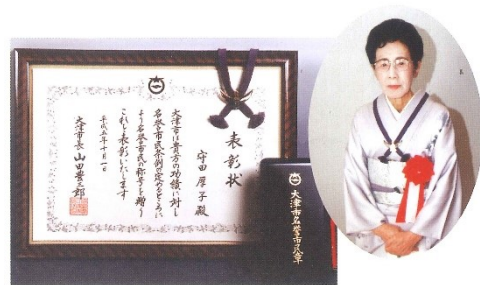 表彰状
守田厚子殿
大津市は貴方の功績に対し
名誉市民条例の定めるところに
より名誉市民の称号を贈り
これを表彰いたします
平成五年十月一日
大津市長 山田豊三郎
大津市名誉市民章